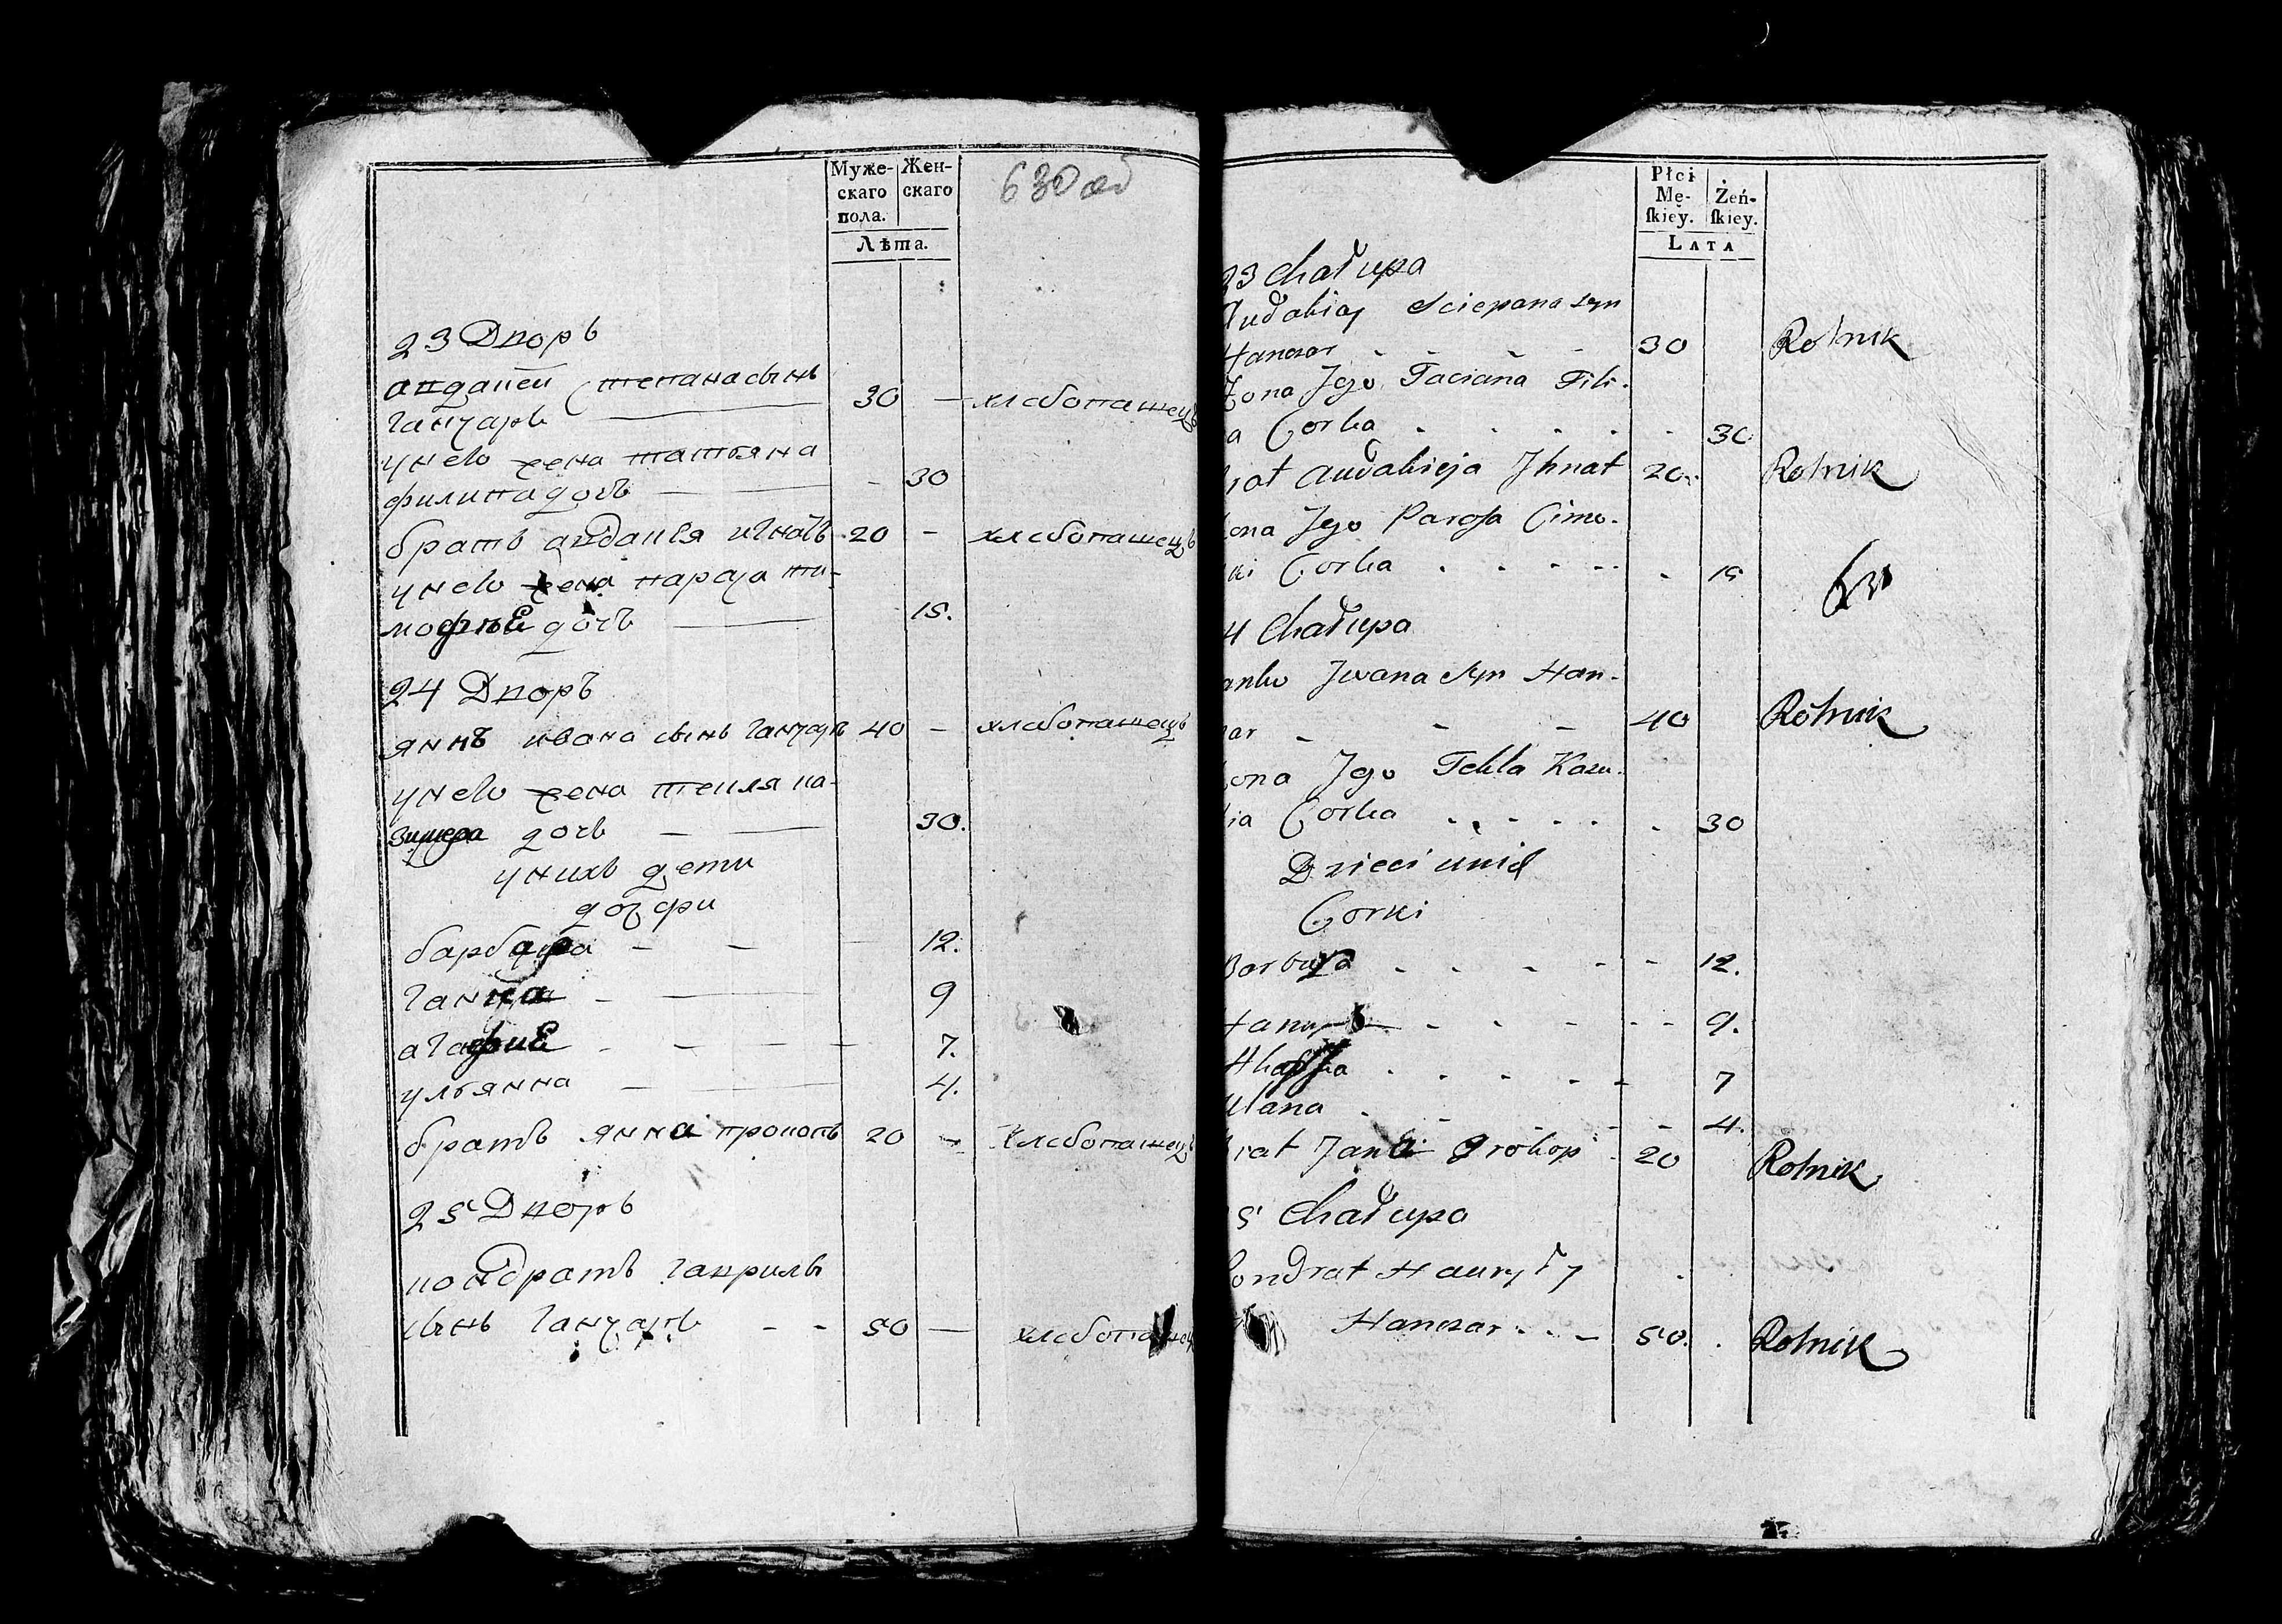 Муже-
скаго
пола.
Жен-
скаго
Лѣта.
630 об
23 Дворъ
авдаѣй степана сынъ
ганчаръ 30 — хлебопашецъ
у него жена татьяна
филипа дочь — 30
братъ авдаѣя игнатъ 20 — хлебопашецъ
у него жена параза ти-
мофѣе дочь 15.
24 Дворъ
янъ ивана сынъ ганчаръ 40 — хлебопашецъ
у него жена текля ка-
зимера дочь — 30.
у нихъ дети
дочери
барбара — — 12.
ганна — 9
агафие — — — 7.
ульянна — 4.
братъ янка прокопъ 20 — хлебопашецъ
25 Дворъ
кондратъ гаврилы
сынъ ганчаръ — — 50 — хлебопашец
Płci
Mę-
ſkiey.
Żeń-
ſkiey.
LATA
23 Chałupa
Audakiey Sciepana syn
Hanczar 30 Rolnik
Zona Jego Taciana Fili-
a Corka 30
rat Audakieja Jhnat 20 Rolnik
ona Jego Parasa Cimo-
ki Corka 15
4 Chałupa
anko Jwana Syn Han-
zar 40 Rolnik
ona Jego Tekla Kazu-
ia Corka 30
Dzieci unich
Corki
Barbara 12.
Hanna 9.
Ahafia 7
Ulana 4.
rat Janka Prokop 20 Rolnik
5 Chałupa
Kondrat Hauryły
Hanczar 50. Rolnik